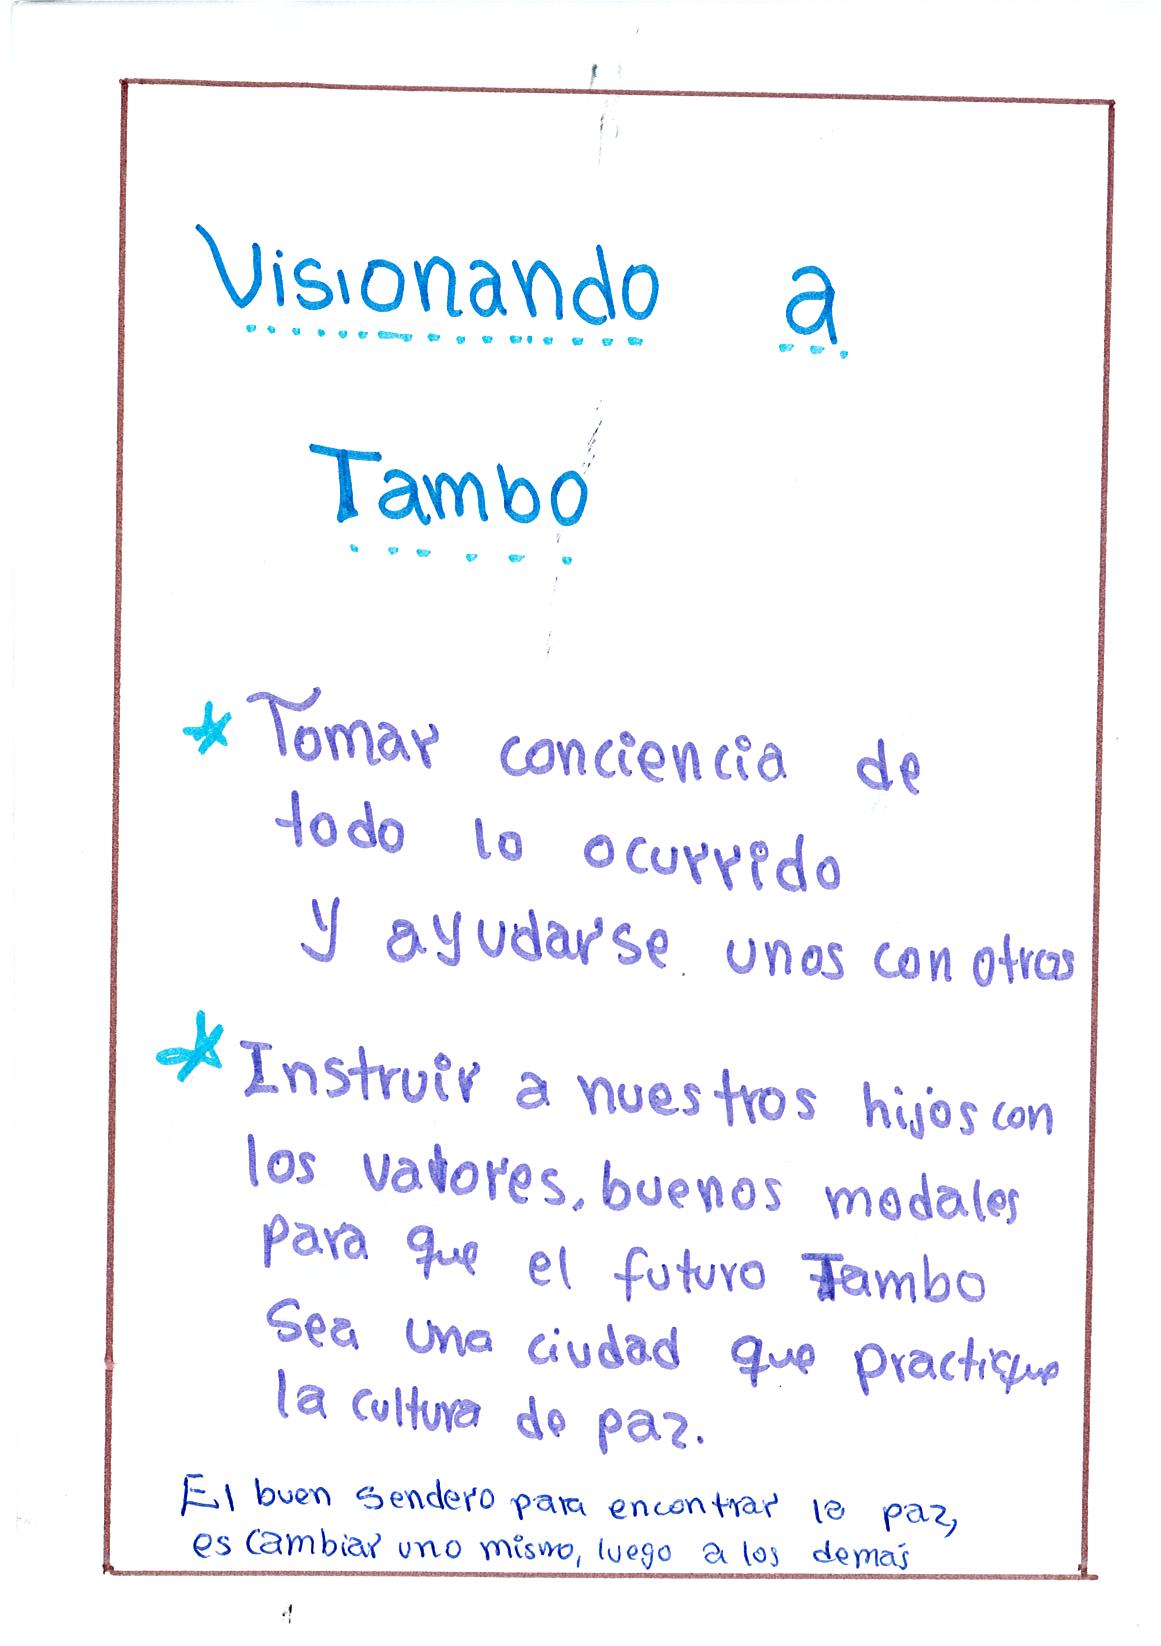 Visionando a
Tambo
* Tomar conciencia de
todo lo ocurrido
y ayudarse unos con otros
* Instruir a nuestros hijos con
los valores, buenos modales
para que el futuro Tambo
Sea una ciudad que practique
la cultura de paz.
El buen sendero para encontrar la paz,
es cambiar uno mismo, luego a los demás